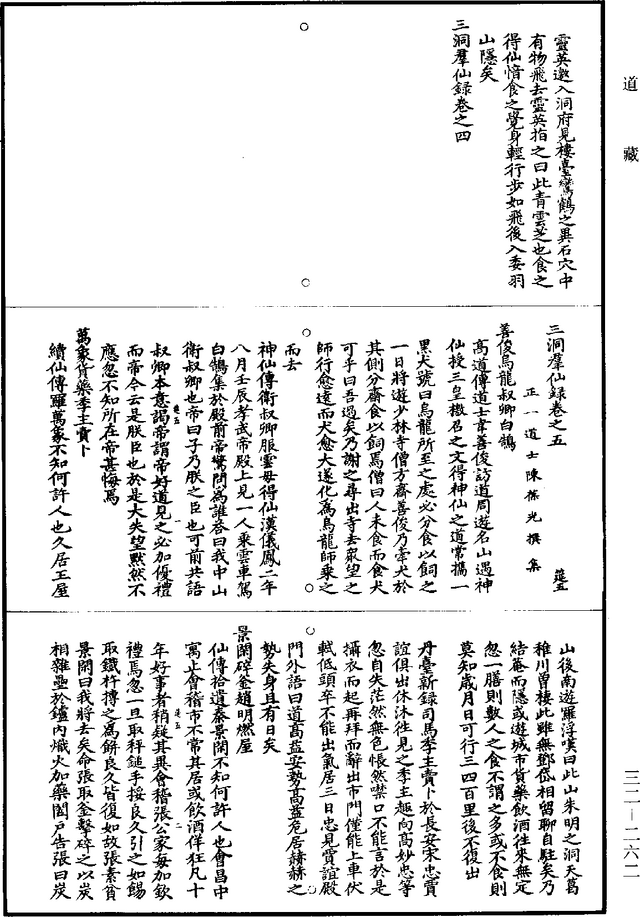 道藏
靈英邀入洞府見樓臺鸞鶴之異石穴中
有物飛去靈英指之曰此青雲芝也食之
得仙愔食之覺身輕行步如飛後入委羽
山隱矣
三洞羣仙錄卷之四
三洞羣仙錄卷之五
正一道士陳葆光撰集
善俊烏龍叔卿白鶴
高道傳道士韋善俊訪道周遊名山遇神
仙授三皇檄召之文得神仙之道常攜一
黑犬號曰烏龍所至之處必分食以飼之
一日將遊少林寺僧方齋善俊乃牽犬於
其側分齋食以飼焉僧曰人未食而食犬
可乎曰吾過矣乃謝之尋出寺去衆望之
師行愈遠而犬愈大遂化為烏龍師乘之
而去
神仙傳衛叔卿服雲母得仙漢儀鳳二年
八月壬辰孝武帝殿上見一人乘雲車駕
白鶴集於殿前帝驚問為誰答曰我中山
衛叔卿也帝曰子乃朕之臣也可前共語
叔卿本意謁帝謂帝好道見之必加優禮
而帝今云是朕臣也於是大失望默然不
應忽不知所在帝甚悔焉
萬象貨藥季主賣卜
續仙傳羅萬象不知何許人也久居王屋
山後南遊羅浮嘆曰此山朱明之洞天葛
稚川曾棲此雖無鄧岱相留聊自駐矣乃
結菴而隱或遊城市貨藥飲酒往來無定
忽一膳則數人之食不謂之多或不食則
莫知歲月日可行三四百里後不復出
丹臺新錄司馬季主賣卜於長安宋忠賈
誼俱出休沐往見之季主趣向高妙忠等
忽自失茫然無色悵然噤口不能言於是
攝衣而起再拜而辭出市門僅能上車伏
軾低頭卒不能出氣居三日忠見賈誼殿
門外語曰道高益安勢高益危居赫赫之
勢失身且有日矣
景閑碎釜趙明燃屋
仙傳拾遺秦景閑不知何許人也會昌中
寓止會稽市不常其居或飲酒佯狂凡十
年好事者稍疑其異會稽張公家每加欽
禮焉忽一旦取秤鎚手挼良久引之如錫
取鐵杵摶之為餅良久皆復如故張素貧
景閑曰我將去矣命張取釜擊碎之以炭
相雜壘於鑪內熾火加藥闔戶告張曰炭
三二—二六二